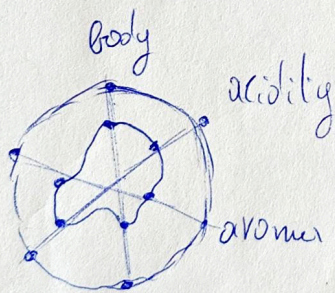 body
acidity
aroma